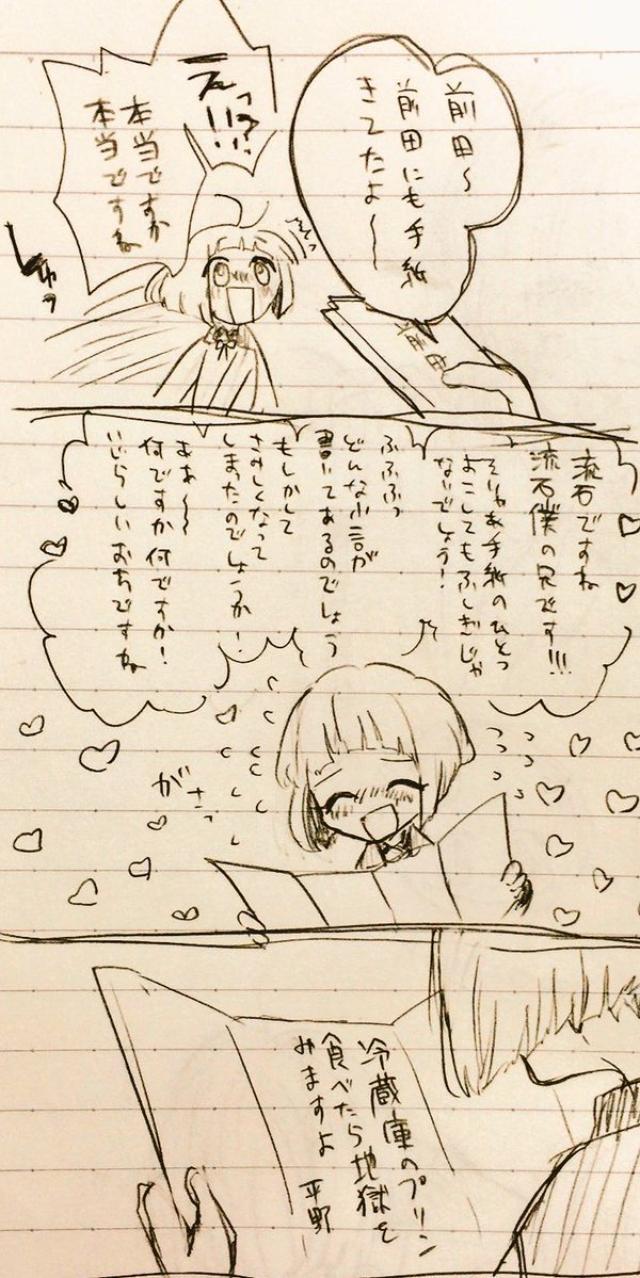 前田〜
前田にも手紙
きてたよ〜
えっ!!?
本当ですか
本当ですね
前田
流石ですね
流石僕の兄です!!!
そりゃあ手紙のひとつ
よこしてもふしぎじゃ
ないでしょう!
ふふふっ
どんな小言が
書いてあるのでしょう
もしかして
さみしくなって
しまったのでしょうか!
ああ〜〜
何ですか何ですか!
いじらしいおちですね
がさっ
冷蔵庫のプリン
食べたら地獄を
みますよ
平野